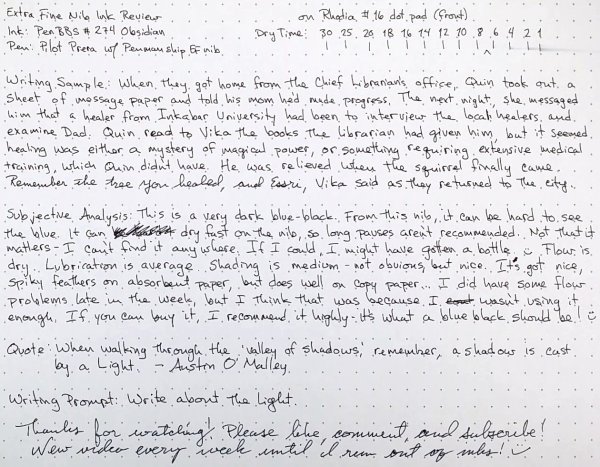 Extra Fine Nib Ink Review on Rhodia #16 dot pad (front)
Ink: PenBBS #274 Obsidian Dry Time: 30 25 20 18 16 14 12 10 8 6 4 2 1
Pen: Pilot Prera w/ Penmanship EF nib
Writing Sample: When they got home from the Chief Librarian's office, Quin took out a
sheet of message paper and told his mom he'd made progress. The next night, she messaged
him that a healer from Inkabar University had been to interview the local healers and
examine Dad. Quin read to Vika the books the librarian had given him, but it seemed
healing was either a mystery of magical power, or something requiring extensive medical
training, which Quin didn't have. He was relieved when the squirrel finally came.
Remember the tree you healed, and Essri, Vika said as they returned to the city.
Subjective Analysis: This is a very dark blue-black. From this nib, it can be hard to see
the blue. It can dry fast on the nib, so long pauses aren't recommended. Not that it
matters - I can't find it anywhere. If I could, I might have gotten a bottle. Flow is
dry. Lubrication is average. Shading is medium - not obvious, but nice. It's got nice,
spiky feathers on absorbent paper, but does well on copy paper... I did have some flow
problems late in the week, but I think that was because I wasn't using it
enough. If you can buy it, I recommend it highly - it's what a blue black should be!
Quote: When walking through the 'valley of shadows,' remember, a shadow is cast
by a Light. - Austin O'Malley
Writing Prompt: Write about the Light.
Thanks for watching! Please like, comment, and subscribe!
New video every week until I run out of inks!